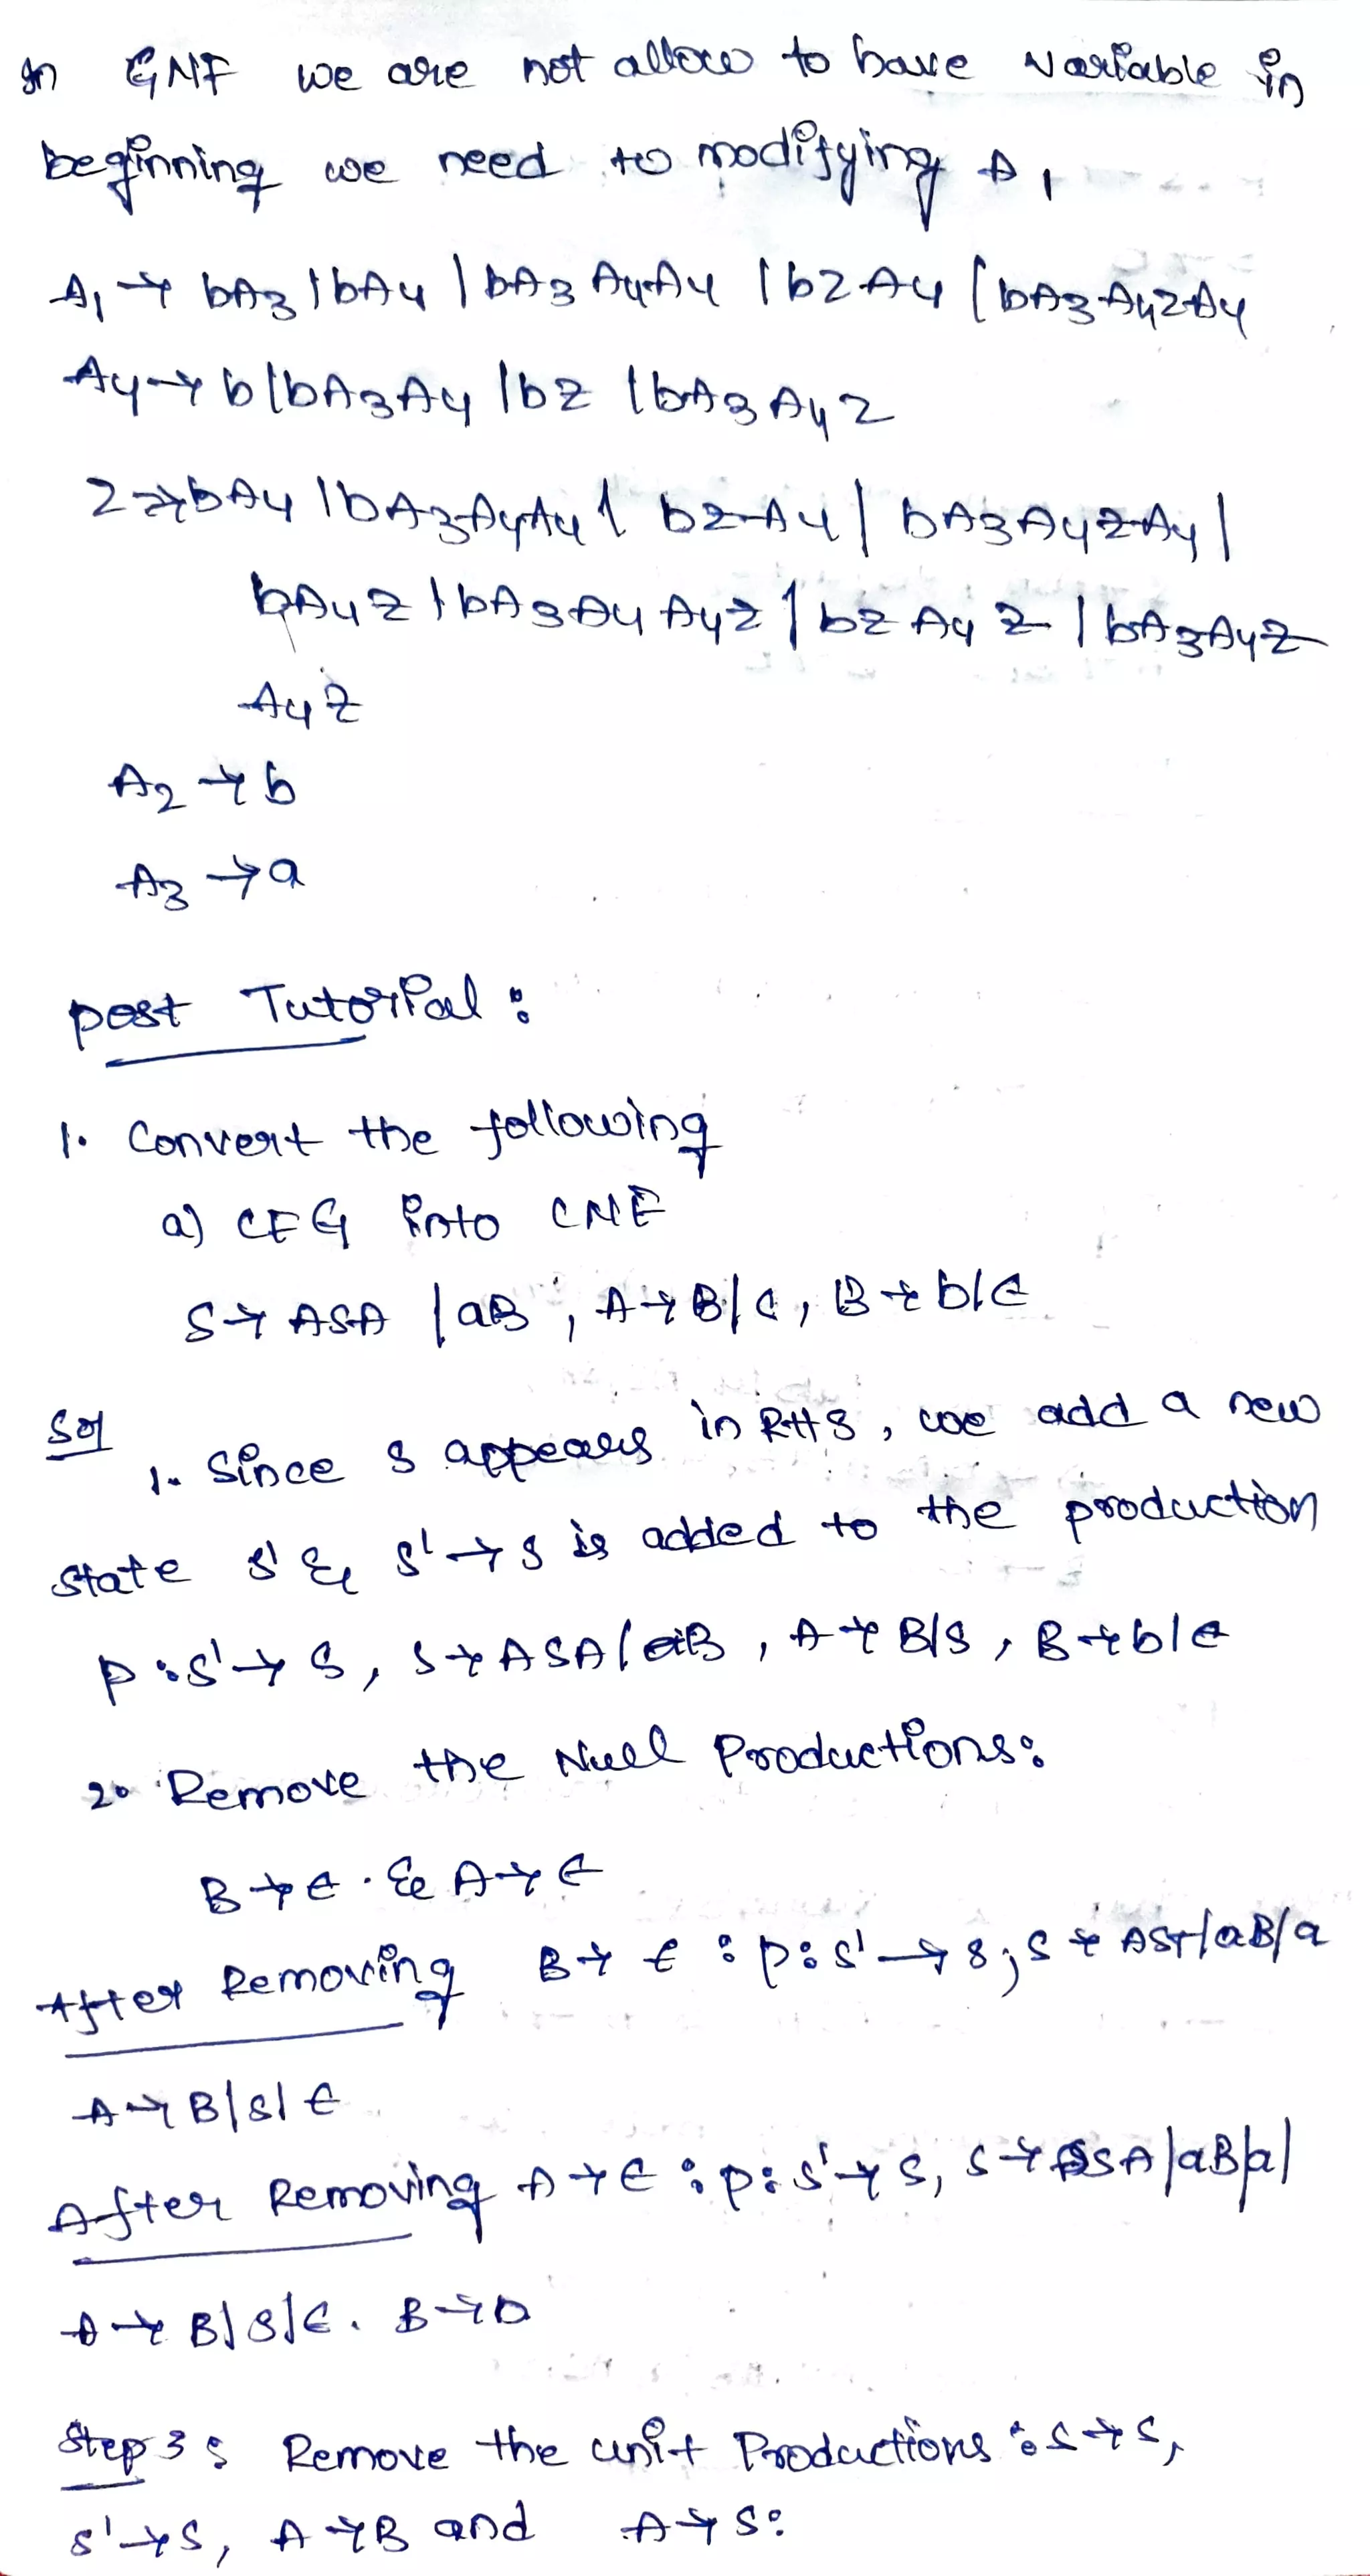 In GNF we are not allow to have variable in
beginning we need to modifying A1
A1 → bA3 | bA4 | bA3 A4A4 | bZA4 | bA3A4ZA4
A4 → b|bA3A4 |bZ |bA3A4Z
Z → bA4 |bA3A4A4 | bZA4 | bA3A4ZA4 |
bA4Z | bA3A4 A4Z | bZ A4 Z | bA3A4Z
A4Z
A2 → b
A3 → a
Post Tutorial :
1. Convert the following
a) CFG into CNF
S → ASA | aB , A → B| , B → b|ϵ
Sol
1. Since S appears in RHS, we add a new
state S' & S' → S is added to the production
P : S' → S, S → ASA|aB , A → B|S , B → b|ϵ
2. Remove the Null Productions:
B → ϵ . & A → ϵ
After Removing B → ϵ : P: S' → S; S → |aB|a
A → B|S|ϵ
After Removing A → ϵ : P: S' → S, S → SA|aB|a|
A → B|S|ϵ. B → b
Step 3 : Remove the unit Productions : S → S,
S' → S, A → B and A → S: